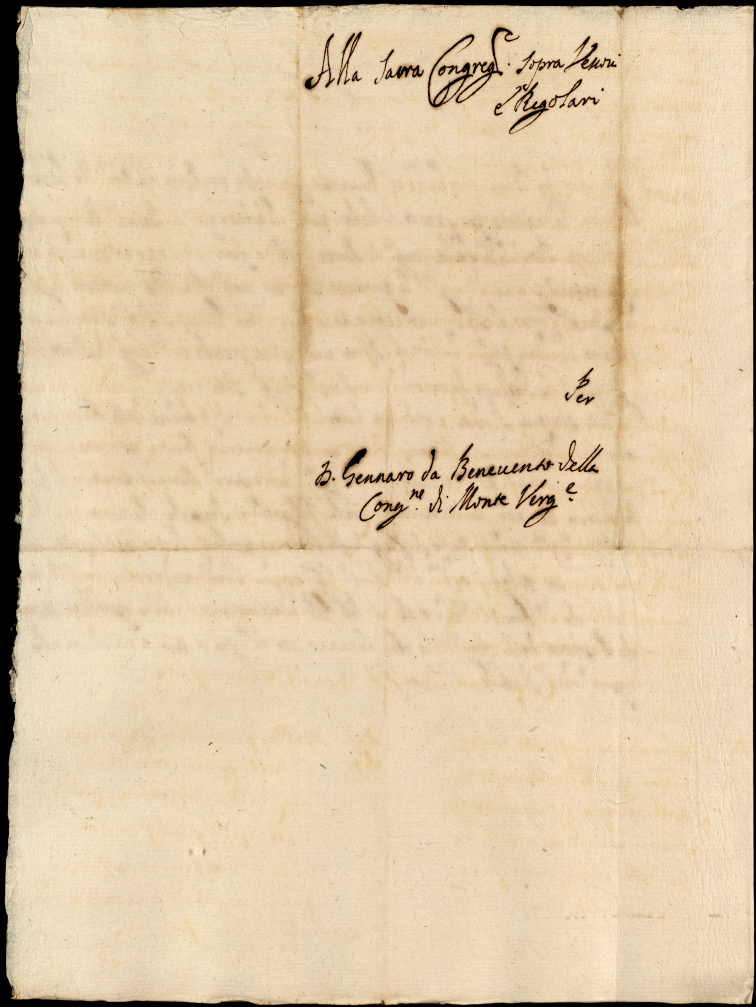 Alla Sacra Congreg.e sopra Vescovi
e Regolari
Per
D. Gennaro da Benevento della
Cong.ne di Monte Verg.e